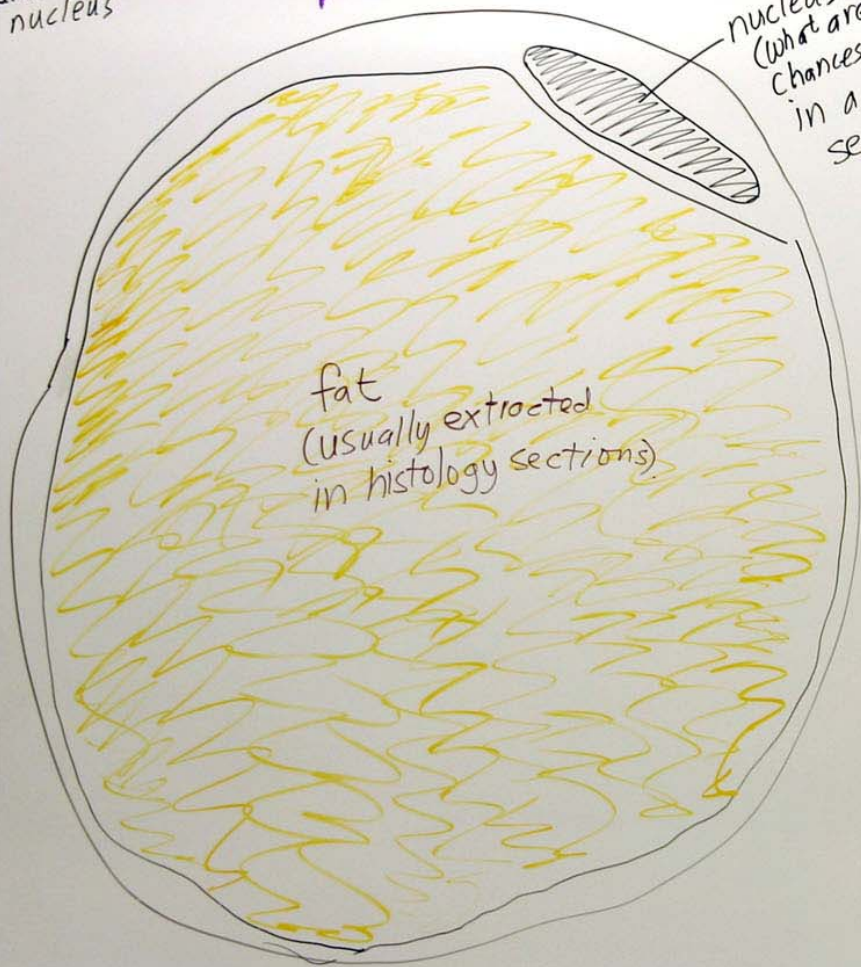 nucleus
nucleus
(what are
chances
in a
se
fat
(usually extracted
in histology sections).